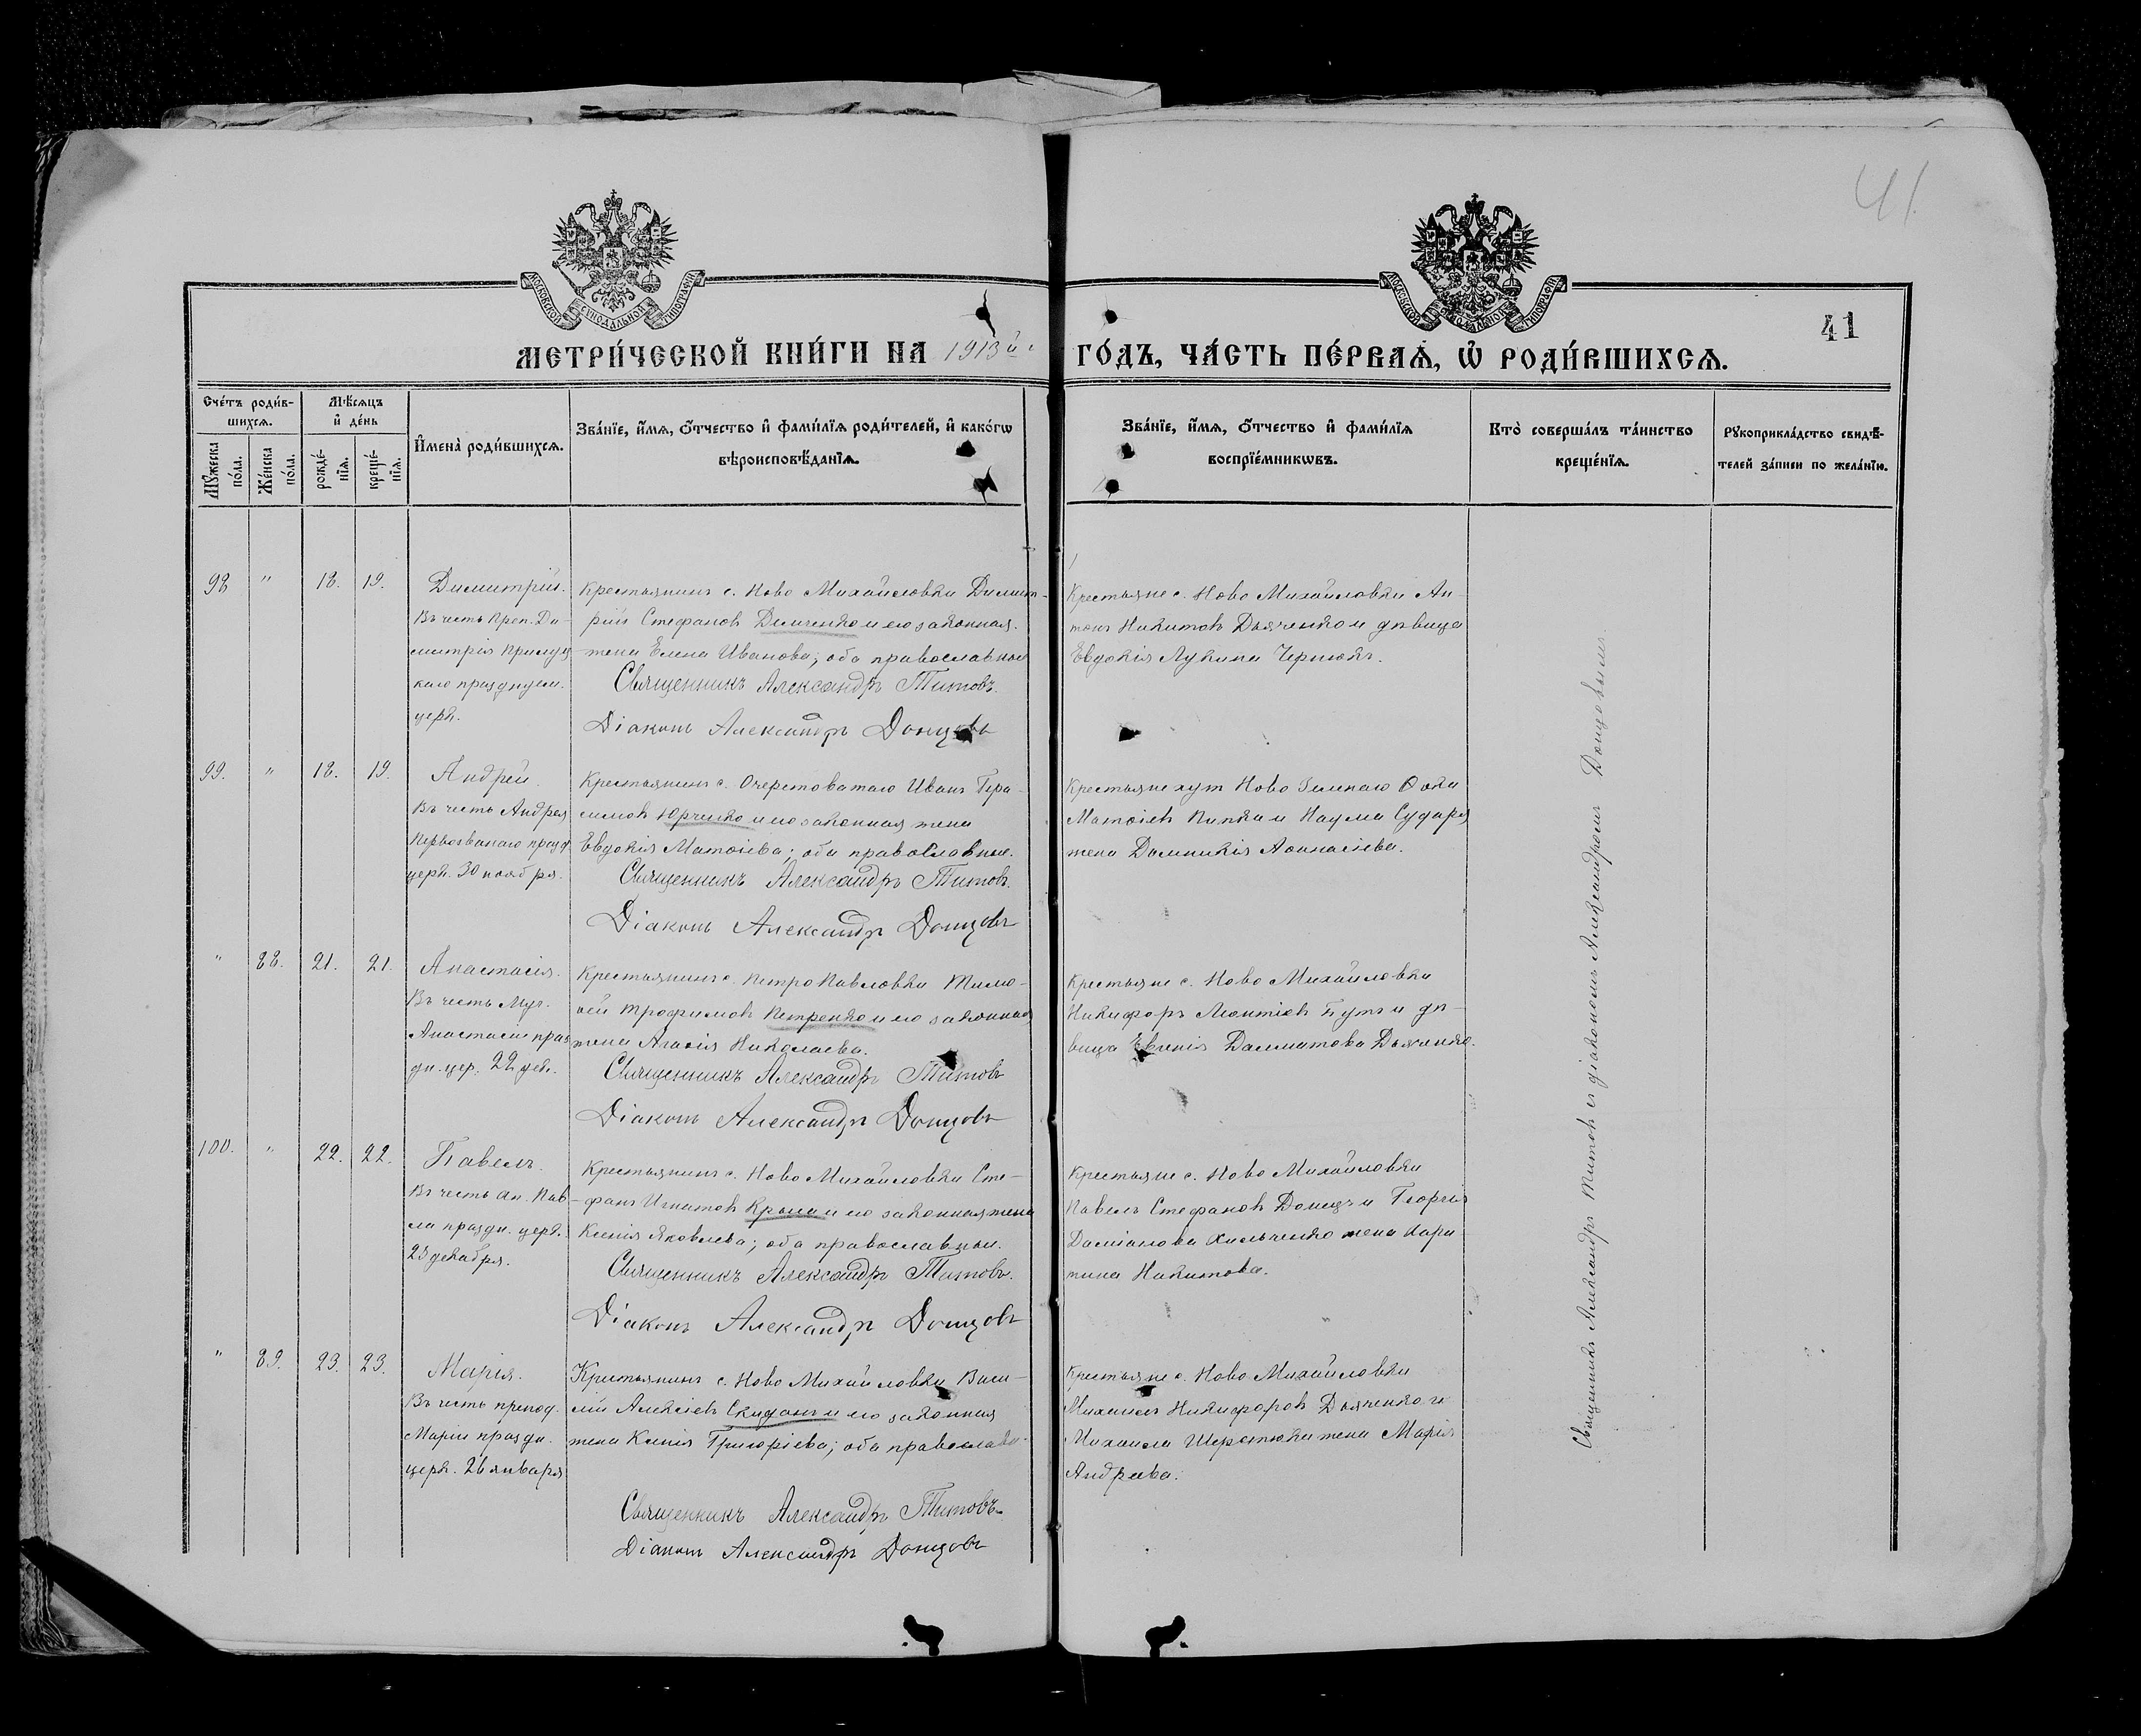 41
МОСКОВСКОЙ СУНОДАЛЬНОЙ ТИПОГРАФІИ
МОСКОВСКОЙ СУНОДАЛЬНОЙ ТИПОГРАФІИ
41
МЕТРИ́ЧЕСКОЙ КНИ́ГИ НА 1913й
ГО́ДЪ, ЧА́СТЬ ПЕ́РВАѦ, Ѡ҆ РОДИ́ВШИХСѦ.
Сче́тъ роди́в-
шихсѧ.
Мꙋ́жеска по́ла.
Же́нска по́ла.
Мѣ́сѧцъ
и҆ де́нь
рожде́-
нїѧ.
креще́-
нїѧ.
И҆мена̀ роди́вшихсѧ.
Зва́нїе, и҆́мѧ, ѻ҆́тчество и҆ фами́лїѧ роди́телей, и҆ како́гѡ
вѣроисповѣ́данїѧ.
Зва́нїе, и҆́мѧ, ѻ҆́тчество и҆ фами́лїѧ
воспрїе́мникѡвъ.
Кто̀ соверша́лъ та́инство
креще́нїѧ.
Рꙋкоприкла́дство свидѣ́-
телей за́писи по жела́нїю.
98 " 18. 19.
Димитрій.
Въ честь Преп. Ди-
митрія Прилуц-
каго праздуем.
церк.
Крестьянинъ с. Ново Михайловки Димит-
рій Стефановъ Демченко и его законная
жена Елена Иванова; оба православные
Священникъ Александръ Титовъ.
Діаконъ Александръ Донцовъ
Крестьяне с. Ново Михайловки Ан-
тонъ Никитовъ Дьяченко и дѣвица
Евдокія Лукина Чернюкъ.
99. " 18. 19.
Андрей.
Въ честь Андрея
Первозваннаго празд.
церк. 30 ноября.
Крестьянинъ с. Очеретоватаго Иванъ Гера-
симовъ Юрченко и его законная жена
Евдокія Матѳіева; оба православные.
Священникъ Александръ Титовъ.
Діаконъ Александръ Донцовъ
Крестьяне хут Ново
Матѳіевъ и Наума Сударя
жена Домникія Аѳанасіева.
" 88. 21. 21.
Анастасія.
Въ честь Муч.
Анастасіи праз
дн. цер. 22 дек.
Крестьянинъ с. Петро Павловки Тимо-
ѳей Трофимовъ Петренко и его законная
жена Агаѳія Николаева.
Священникъ Александръ Титовъ
Діаконъ Александръ Донцовъ
Крестьяне с. Ново Михайловки
Никифоръ Леонтіевъ Бутъ и дѣ-
вица Евгенія Далматова Дьяченко.
100. " 22. 22.
Павелъ.
Въ честь ап. Пав-
ла праздн. церк.
23 декабря.
Крестьянинъ с. Ново Михайловки Сте-
фанъ Игнатовъ и его законная жена
Ксенія Яковлева; оба православные.
Священникъ Александръ Титовъ.
Діаконъ Александръ Донцовъ
Крестьяне с. Ново Михайловки
Павелъ Стефановъ Донецъ и Георгія
Даміанова Хильченко жена Хари-
тина Никитова.
" 89. 23. 23.
Марія.
Въ честь препод.
Маріи праздн.
церк. 26 января
Крестьянинъ с. Ново Михайловки Васи-
лій Алексіевъ Скиданъ и его законная
жена Ксенія Григоріева; оба православн.
Священникъ Александръ Титовъ
Діаконъ Александръ Донцовъ
Крестьяне с. Ново Михайловки
Михаилъ Никифоровъ Дьяченко и
Михаила Шерстюка жена Марія
Андреева.
Священникъ Александръ Титовъ съ діакономъ Александромъ Донцовымъ.